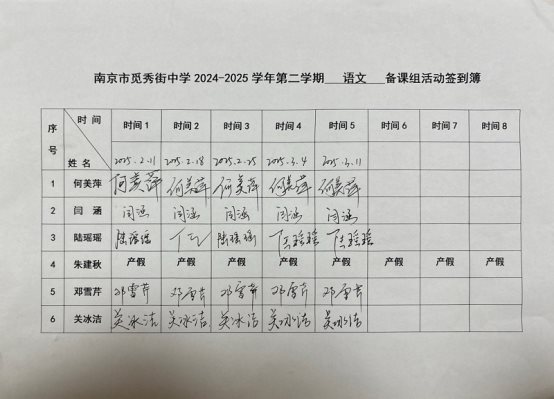 南京市觅秀街中学 2024-2025 学年第二学期 语文 备课组活动签到簿
序号 时间 姓名 时间 1 时间 2 时间 3 时间 4 时间 5 时间 6 时间 7 时间 8
2025.2.11 2025.2.18 2025.2.25 2025.3.4 2025.3.11
1 何美萍 何美萍 何美萍 何美萍 何美萍 何美萍
2 闫涵 闫涵 闫涵 闫涵 闫涵 闫涵
3 陆瑶瑶 陆瑶瑶 陆瑶瑶 陆瑶瑶 陆瑶瑶
4 朱建秋 产假 产假 产假 产假 产假 产假 产假 产假
5 邓雪芹 邓雪芹 邓雪芹 邓雪芹 邓雪芹 邓雪芹
6 关冰洁 关冰洁 关冰洁 关冰洁 关冰洁 关冰洁